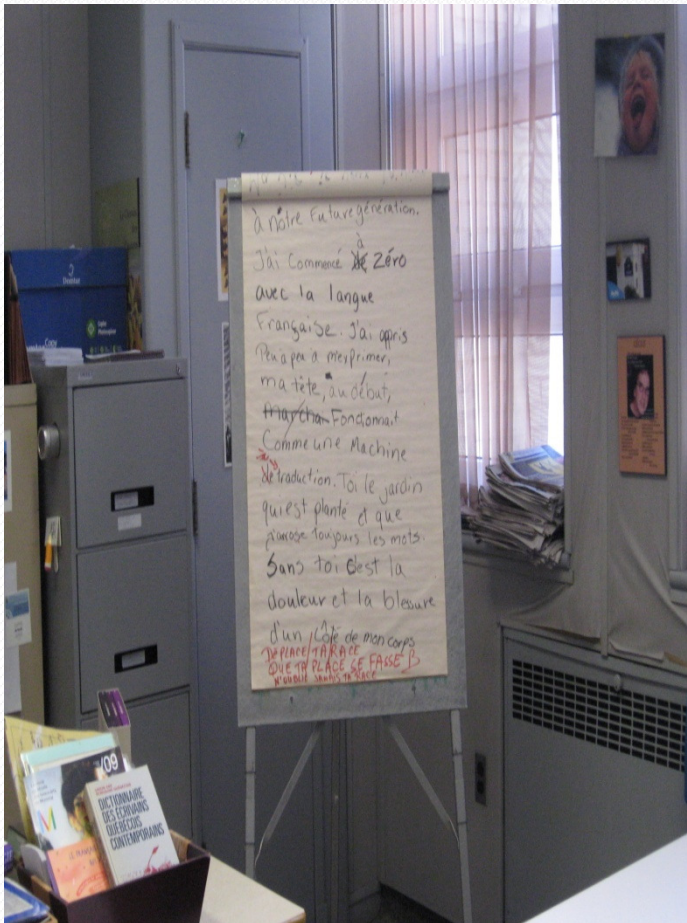 à nôtre Future génération.
à
J'ai Commencé de Zéro
avec la langue
Française. J'ai appris
Peu à peu a m'exprimer,
ma tête, au début,
marcha Fonctionnait
Comme une Machine
de traduction. Toi le jardin
qui est planté et que
j'arrose toujours les mots.
Sans toi c'est la
douleur et la blessure
d'un Côté de mon corps
DÉPLACE / TA RACE
QUE TA PLACE SE FASSE
N'OUBLIE JAMAIS TA RACE
/09
DICTIONNAIRE
DES ÉCRIVAINS
QUÉBÉCOIS
CONTEMPORAINS
Domtar
Copy